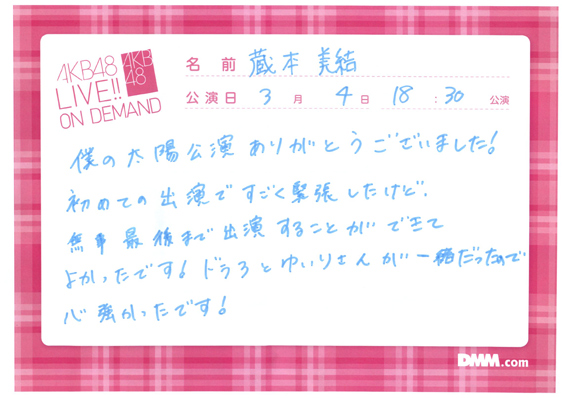 AKB48
LIVE!!
ON DEMAND
AKB
48
名前 蔵本 美結
公演日 3月 4日 18:30 公演
僕の太陽公演ありがとうございました!
初めての出演ですごく緊張したけど、
無事最後まで出演することができて
よかったです!ドラ3とゆいりさんが一緒だったので
心強かったです!
DMM.com